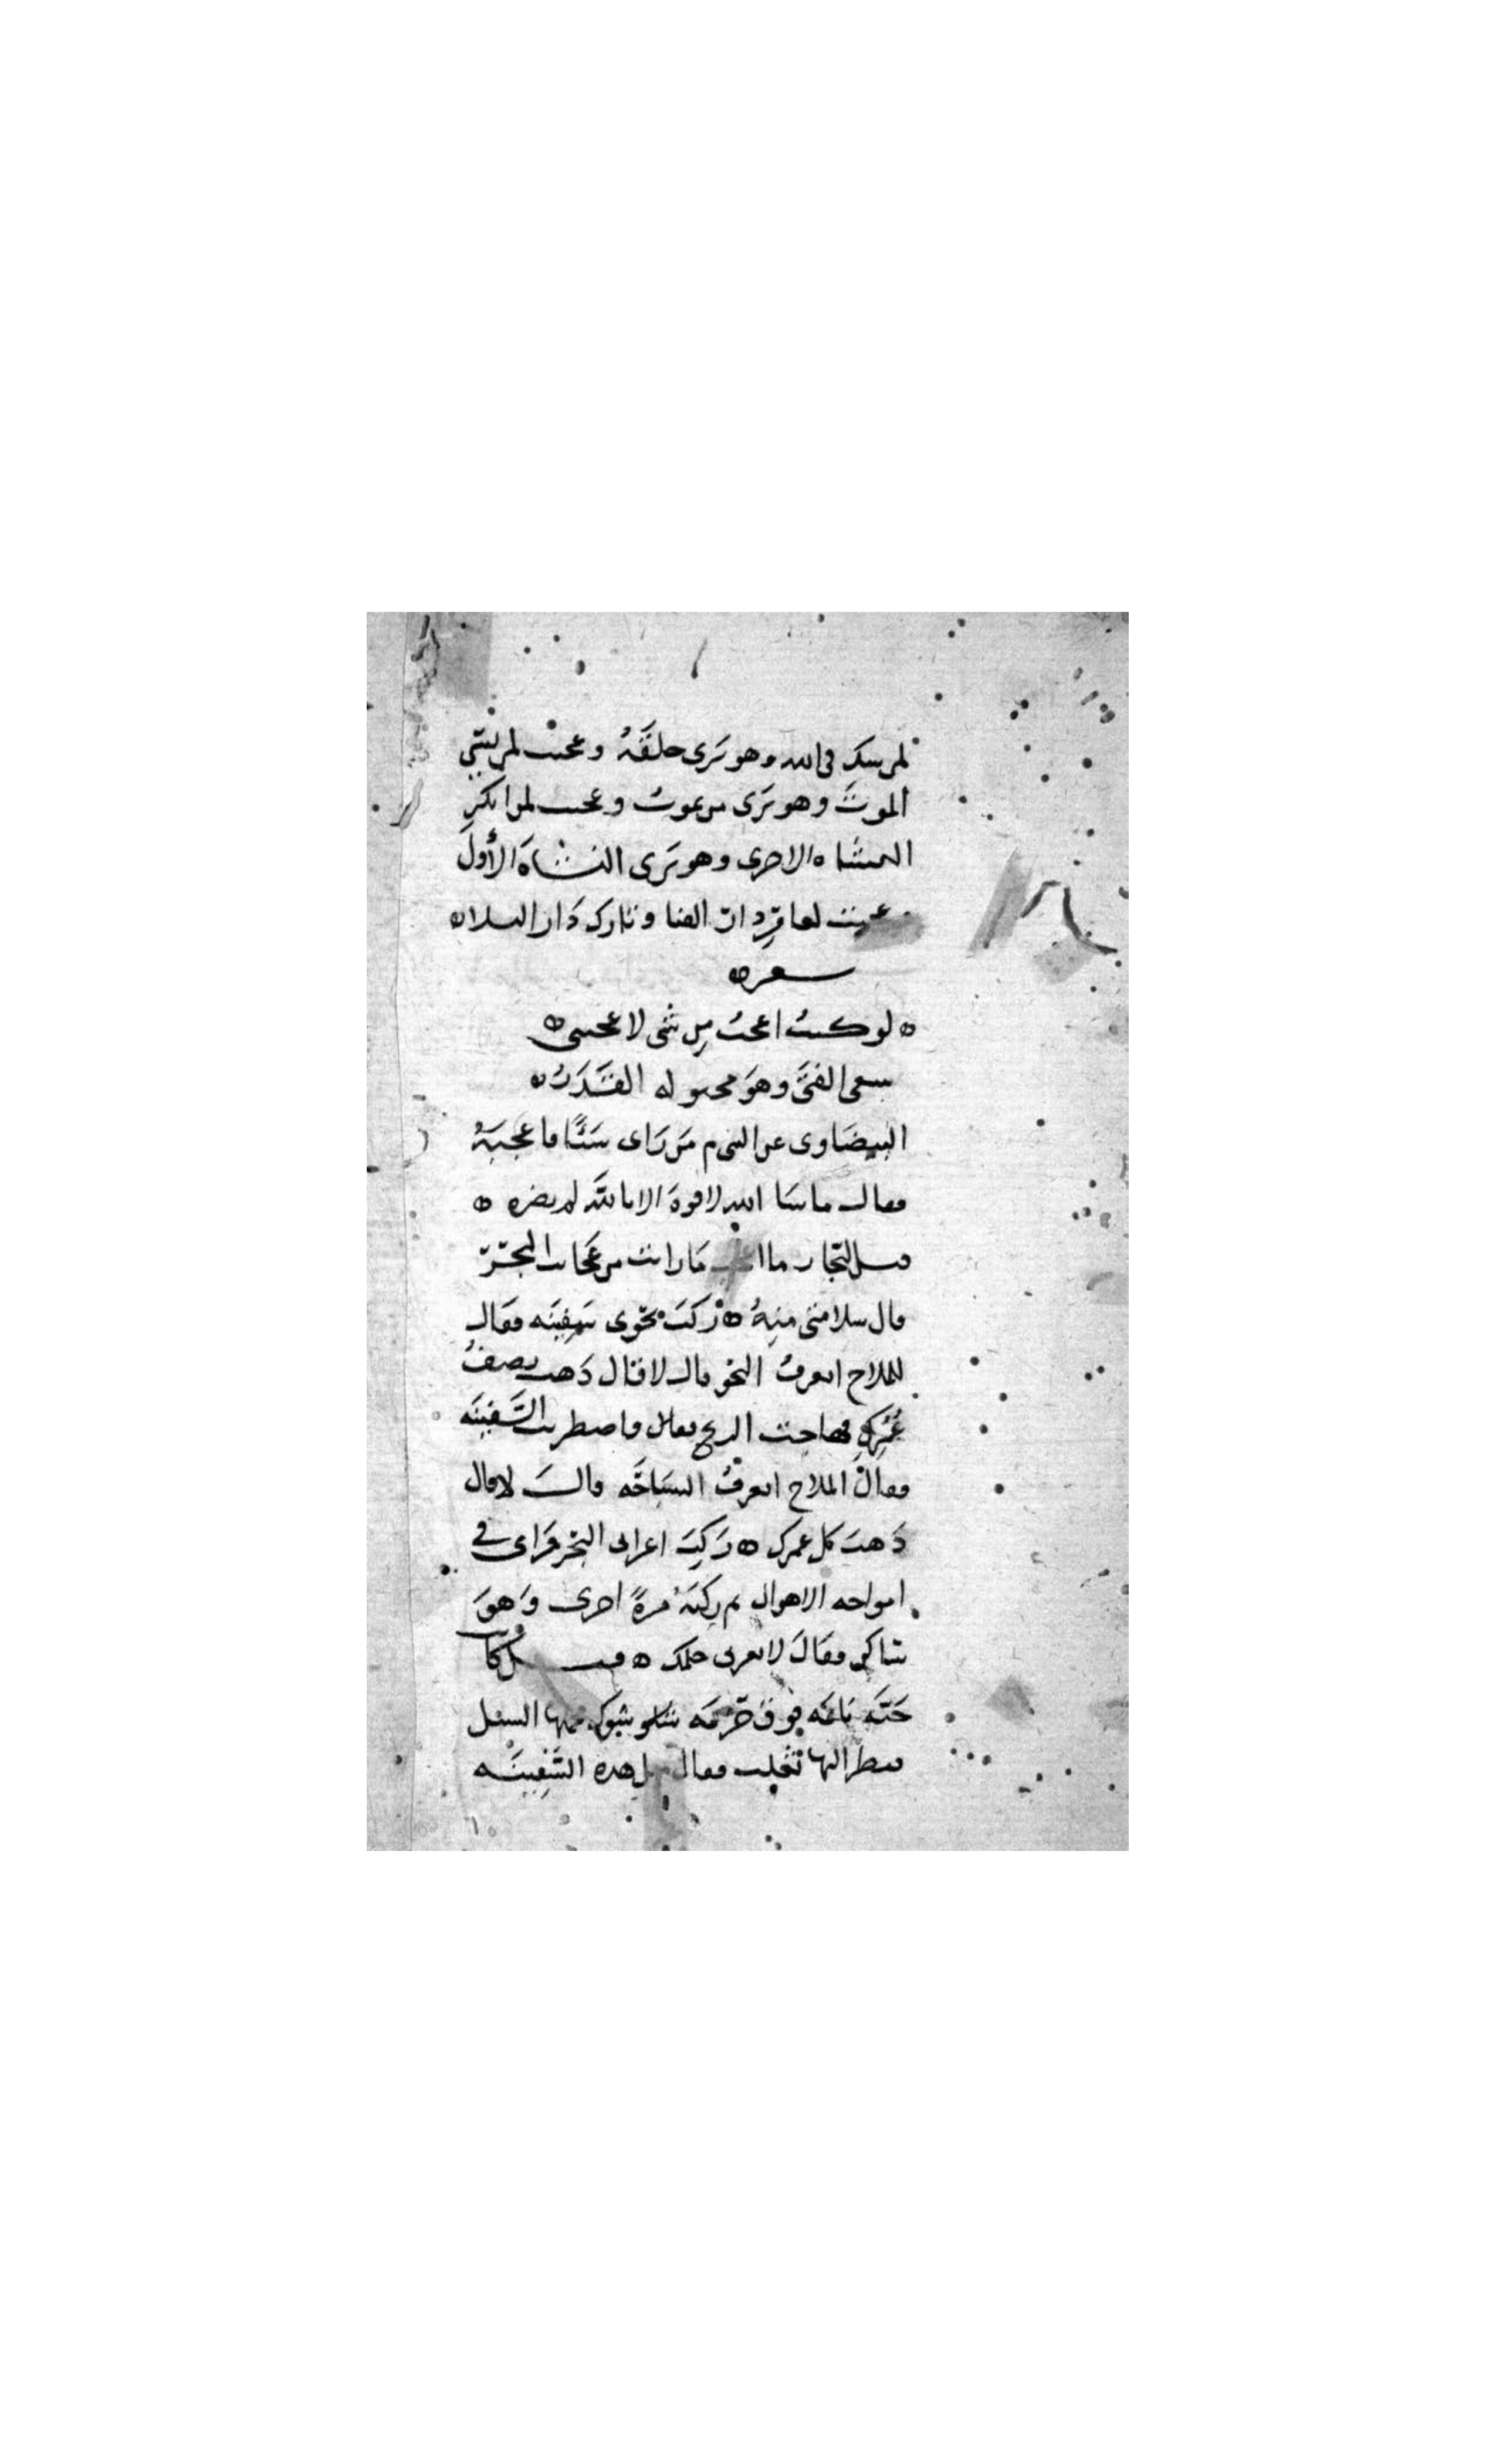 لمن يشك في الله وهو يرى خلقه وعجبت لمن نسي
الموت وهو يرى من يموت وعجبت لمن انكر
النشاه الاخرى وهو يرى النشاة الأولى
وعجبت لعامر دار الفنا وتارك دار البقا ه
شعر ه
ه لو كنت اعجب من شي لاعجبني ه
سعي الفتى وهو مخبو له القدر ه
البيضاوي عن النبي م من راى شيئا فاعجبه
فقال ما شا الله لا قوة الا بالله لم يضره ه
قيل لتجار ما اعجب ما رايت من عجائب البحر
قال سلامتي منه ه ركب نحوي سفينه فقال
للملاح اتعرف النحو قال لا فقال ذهب نصف
عمرك فهاجت الريح فقال واضطربت السفينه
فقال الملاح اتعرف السباحه قال لا قال
ذهب كل عمرك ه ركب اعرابي البحر فراى في
امواجه الاهوال ثم ركبه مرة اخرى وهو
ساكن فقال لا يغرني حلمك ه قيل كانت
حية نائمه فوق حزمه شوك فحملها السيل
فنظر اليها ثعلب فقال مثل هذه السفينه